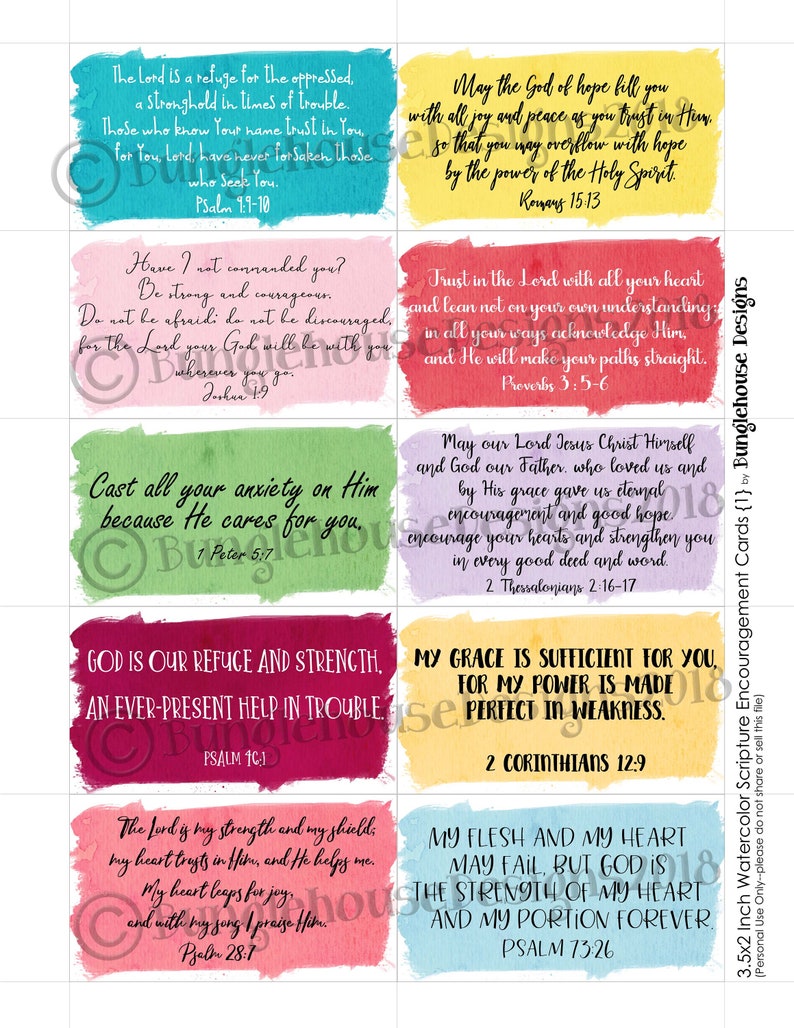 The Lord is a refuge for the oppressed,
a stronghold in times of trouble.
Those who know Your name trust in You,
for You, Lord, have never forsaken those
who seek You.
Psalm 9:9-10
May the God of hope fill you
with all joy and peace as you trust in Him,
so that you may overflow with hope
by the power of the Holy Spirit.
Romans 15:13
© BunglehouseDesigns2018
Have I not commanded you?
Be strong and courageous.
Do not be afraid; do not be discouraged,
for the Lord your God will be with you
wherever you go.
Joshua 1:9
Trust in the Lord with all your heart
and lean not on your own understanding;
in all your ways acknowledge Him,
and He will make your paths straight.
Proverbs 3:5-6
© BunglehouseDesigns2018
Cast all your anxiety on Him
because He cares for you.
1 Peter 5:7
May our Lord Jesus Christ Himself
and God our Father, who loved us and
by His grace gave us eternal
encouragement and good hope,
encourage your hearts and strengthen you
in every good deed and word.
2 Thessalonians 2:16-17
© BunglehouseDesigns2018
GOD IS OUR REFUGE AND STRENGTH,
AN EVER-PRESENT HELP IN TROUBLE.
PSALM 46:1
MY GRACE IS SUFFICIENT FOR YOU,
FOR MY POWER IS MADE
PERFECT IN WEAKNESS.
2 CORINTHIANS 12:9
© BunglehouseDesigns2018
The Lord is my strength and my shield;
my heart trusts in Him, and He helps me.
My heart leaps for joy,
and with my song I praise Him.
Psalm 28:7
MY FLESH AND MY HEART
MAY FAIL, BUT GOD IS
THE STRENGTH OF MY HEART
AND MY PORTION FOREVER.
PSALM 73:26
© BunglehouseDesigns2018
3.5x2 Inch Watercolor Scripture Encouragement Cards {1} by Bunglehouse Designs
(Personal Use Only--please do not share or sell this file)